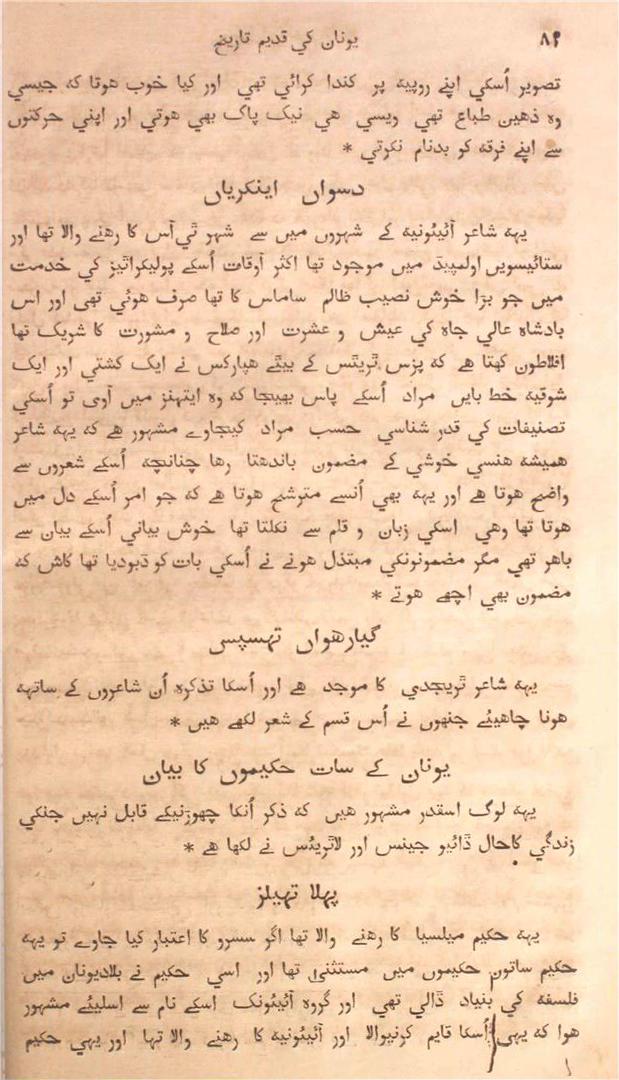 ۸۴ یونان کي قدیم تاریخ
تصویر اُسکي اپنے روپیہ پر کندا کرائي تھي اور کیا خوب ھوتا کہ جیسي
وہ ذھین طباع تھي ویسي ھي نیک پاک بھي ھوتي اور اپني حرکتوں
سے اپنے فرقہ کو بدنام نکرتي *
دسواں اینکریاں
یہہ شاعر آئیئونیہ کے شہروں میں سے شہر تي‌آس کا رھنے والا تھا اور
ستائیسویں اولمپیڈ میں موجود تھا اکثر اوقات اُسکے پولیکراٹیز کي خدمت
میں جو بڑا خوش نصیب ظالم ساماس کا تھا صرف ھوئي تھي اور اس
بادشاہ عالي جاہ کي عیش و عشرت اور صلاح و مشورت کا شریک تھا
افلاطون کہتا ھے کہ پزس ٹریٹس کے بیٹے ھپارکس نے ایک کشتي اور ایک
شوقیہ خط بایں مراد اُسکے پاس بھیجا کہ وہ ایتھنز میں آوی تو اُسکي
تصنیفات کي قدر شناسي حسب مراد کیجاوے مشہور ھے کہ یہہ شاعر
ھمیشہ ھنسي خوشي کے مضمون باندھتا رھا چنانچہ اُسکے شعروں سے
واضح ھوتا ھے اور یہہ بھي اُنسے مترشح ھوتا ھے کہ جو امر اُسکے دل میں
ھوتا تھا وھي اسکي زبان و قلم سے نکلتا تھا خوش بیاني اُسکے بیان سے
باھر تھي مگر مضمونونکي مبتذل ھونے نے اُسکي بات کو ڈبودیا تھا کاش کہ
مضمون بھي اچھے ھوتے *
گیارھواں تھسپس
یہہ شاعر ٹریجڈي کا موجد ھے اور اُسکا تذکرہ اُن شاعروں کے ساتھہ
ھونا چاھیئے جنھوں نے اُس قسم کے شعر لکھے ھیں *
یونان کے سات حکیموں کا بیان
یہہ لوگ اسقدر مشہور ھیں کہ ذکر اُنکا چھوڑنیکے قابل نہیں جنکي
زندگي کاحال ڈائیو جینس اور لاٹریئس نے لکھا ھے *
پہلا تھیلز
یہہ حکیم میلسیا کا رھنے والا تھا اگر سسرو کا اعتبار کیا جاوے تو یہہ
حکیم ساتوں حکیموں میں مستثنیٰ تھا اور اسي حکیم نے بلادیونان میں
فلسفہ کي بنیاد ڈالي تھي اور گروہ آئیئونک اسکے نام سے اسلیئے مشہور
ھوا کہ یہي اُسکا قایم کرنیوالا اور آئیئونیہ کا رھنے والا تھا اور یہي حکیم